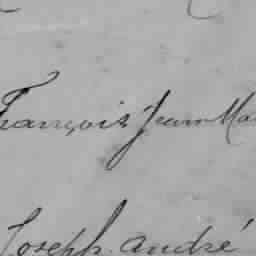 François Jean Ma
Joseph André